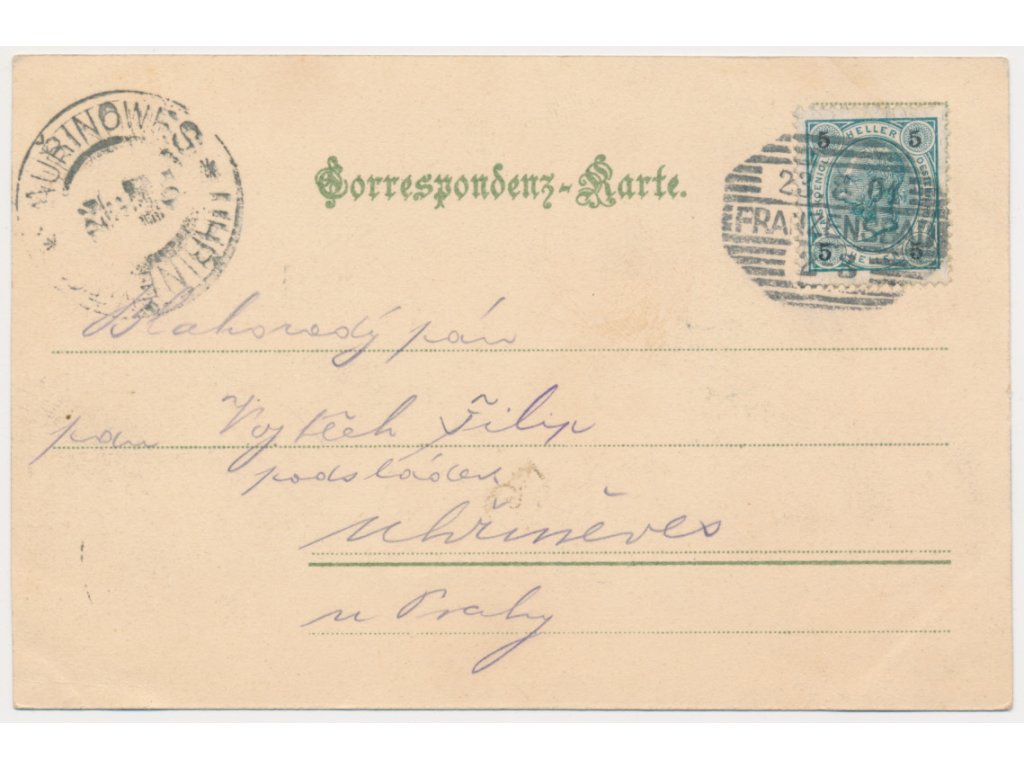 AUŘINOWES * UHŘIN
Correspondenz-Karte.
5 HELLER 5
23 8 01
5 5
Blahorodý pán
pan Vojtěch Filip
podsládek
Uhřiněves
u Prahy